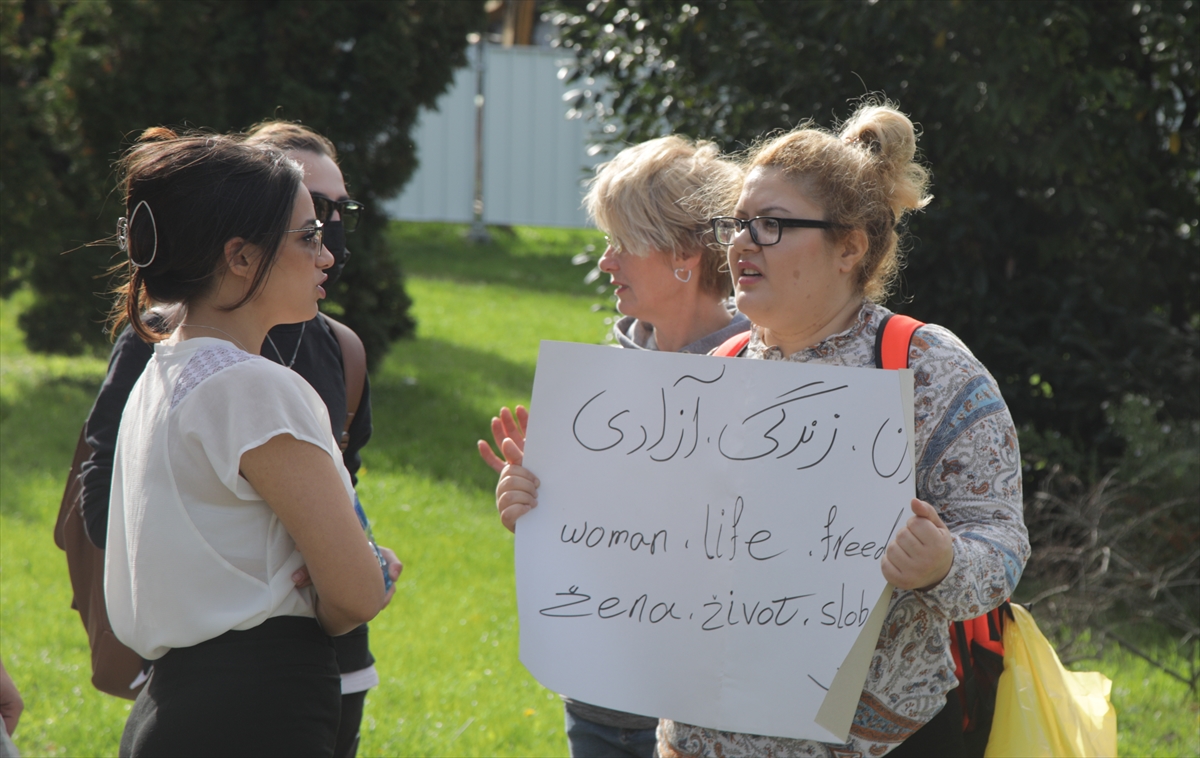 زن . زندگی . آزادی
woman . life . freed
žena . život . slob